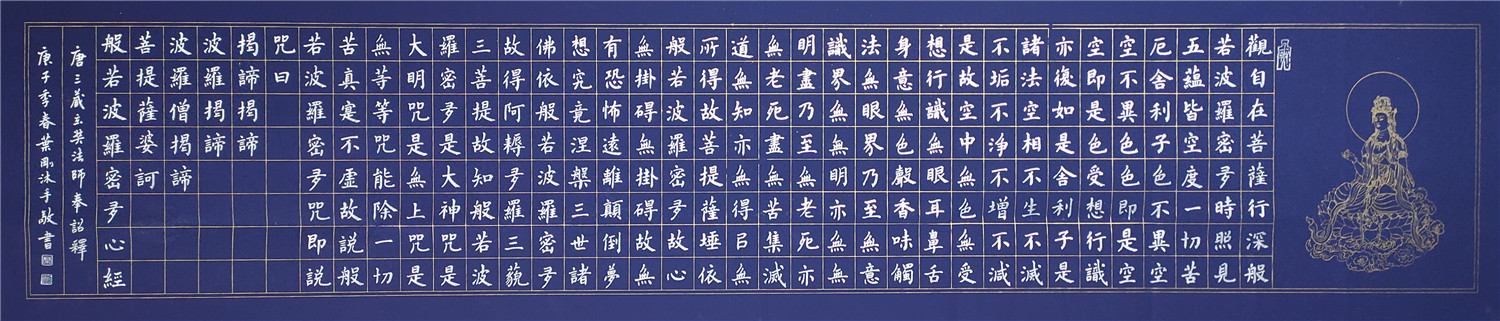 觀自在菩薩行深般
若波羅密多時照見
五蘊皆空度一切苦
厄舍利子色不異空
空不異色色即是空
空即是色受想行識
亦復如是舍利子是
諸法空相不生不滅
不垢不淨不增不減
是故空中無色無受
想行識無眼耳鼻舌
身意無色聲香味觸
法無眼界乃至無意
識界無無明亦無無
明盡乃至無老死亦
無老死盡無苦集滅
道無知亦無得㠯無
所得故菩提薩埵依
般若波羅密多故心
無掛礙無掛礙故無
有恐怖遠離顛倒夢
想究竟涅槃三世諸
佛依般若波羅密多
故得阿耨多羅三藐
三菩提故知般若波
羅密多是大神咒是
大明咒是無上咒是
無等等咒能除一切
苦真寔不虛故說般
若波羅密多咒即說
咒曰
揭諦揭諦
波羅揭諦
波羅僧揭諦
菩提薩婆訶
般若波羅密多心經
唐三藏玄奘法師奉詔釋
庚子季春葉剛沐手敬書